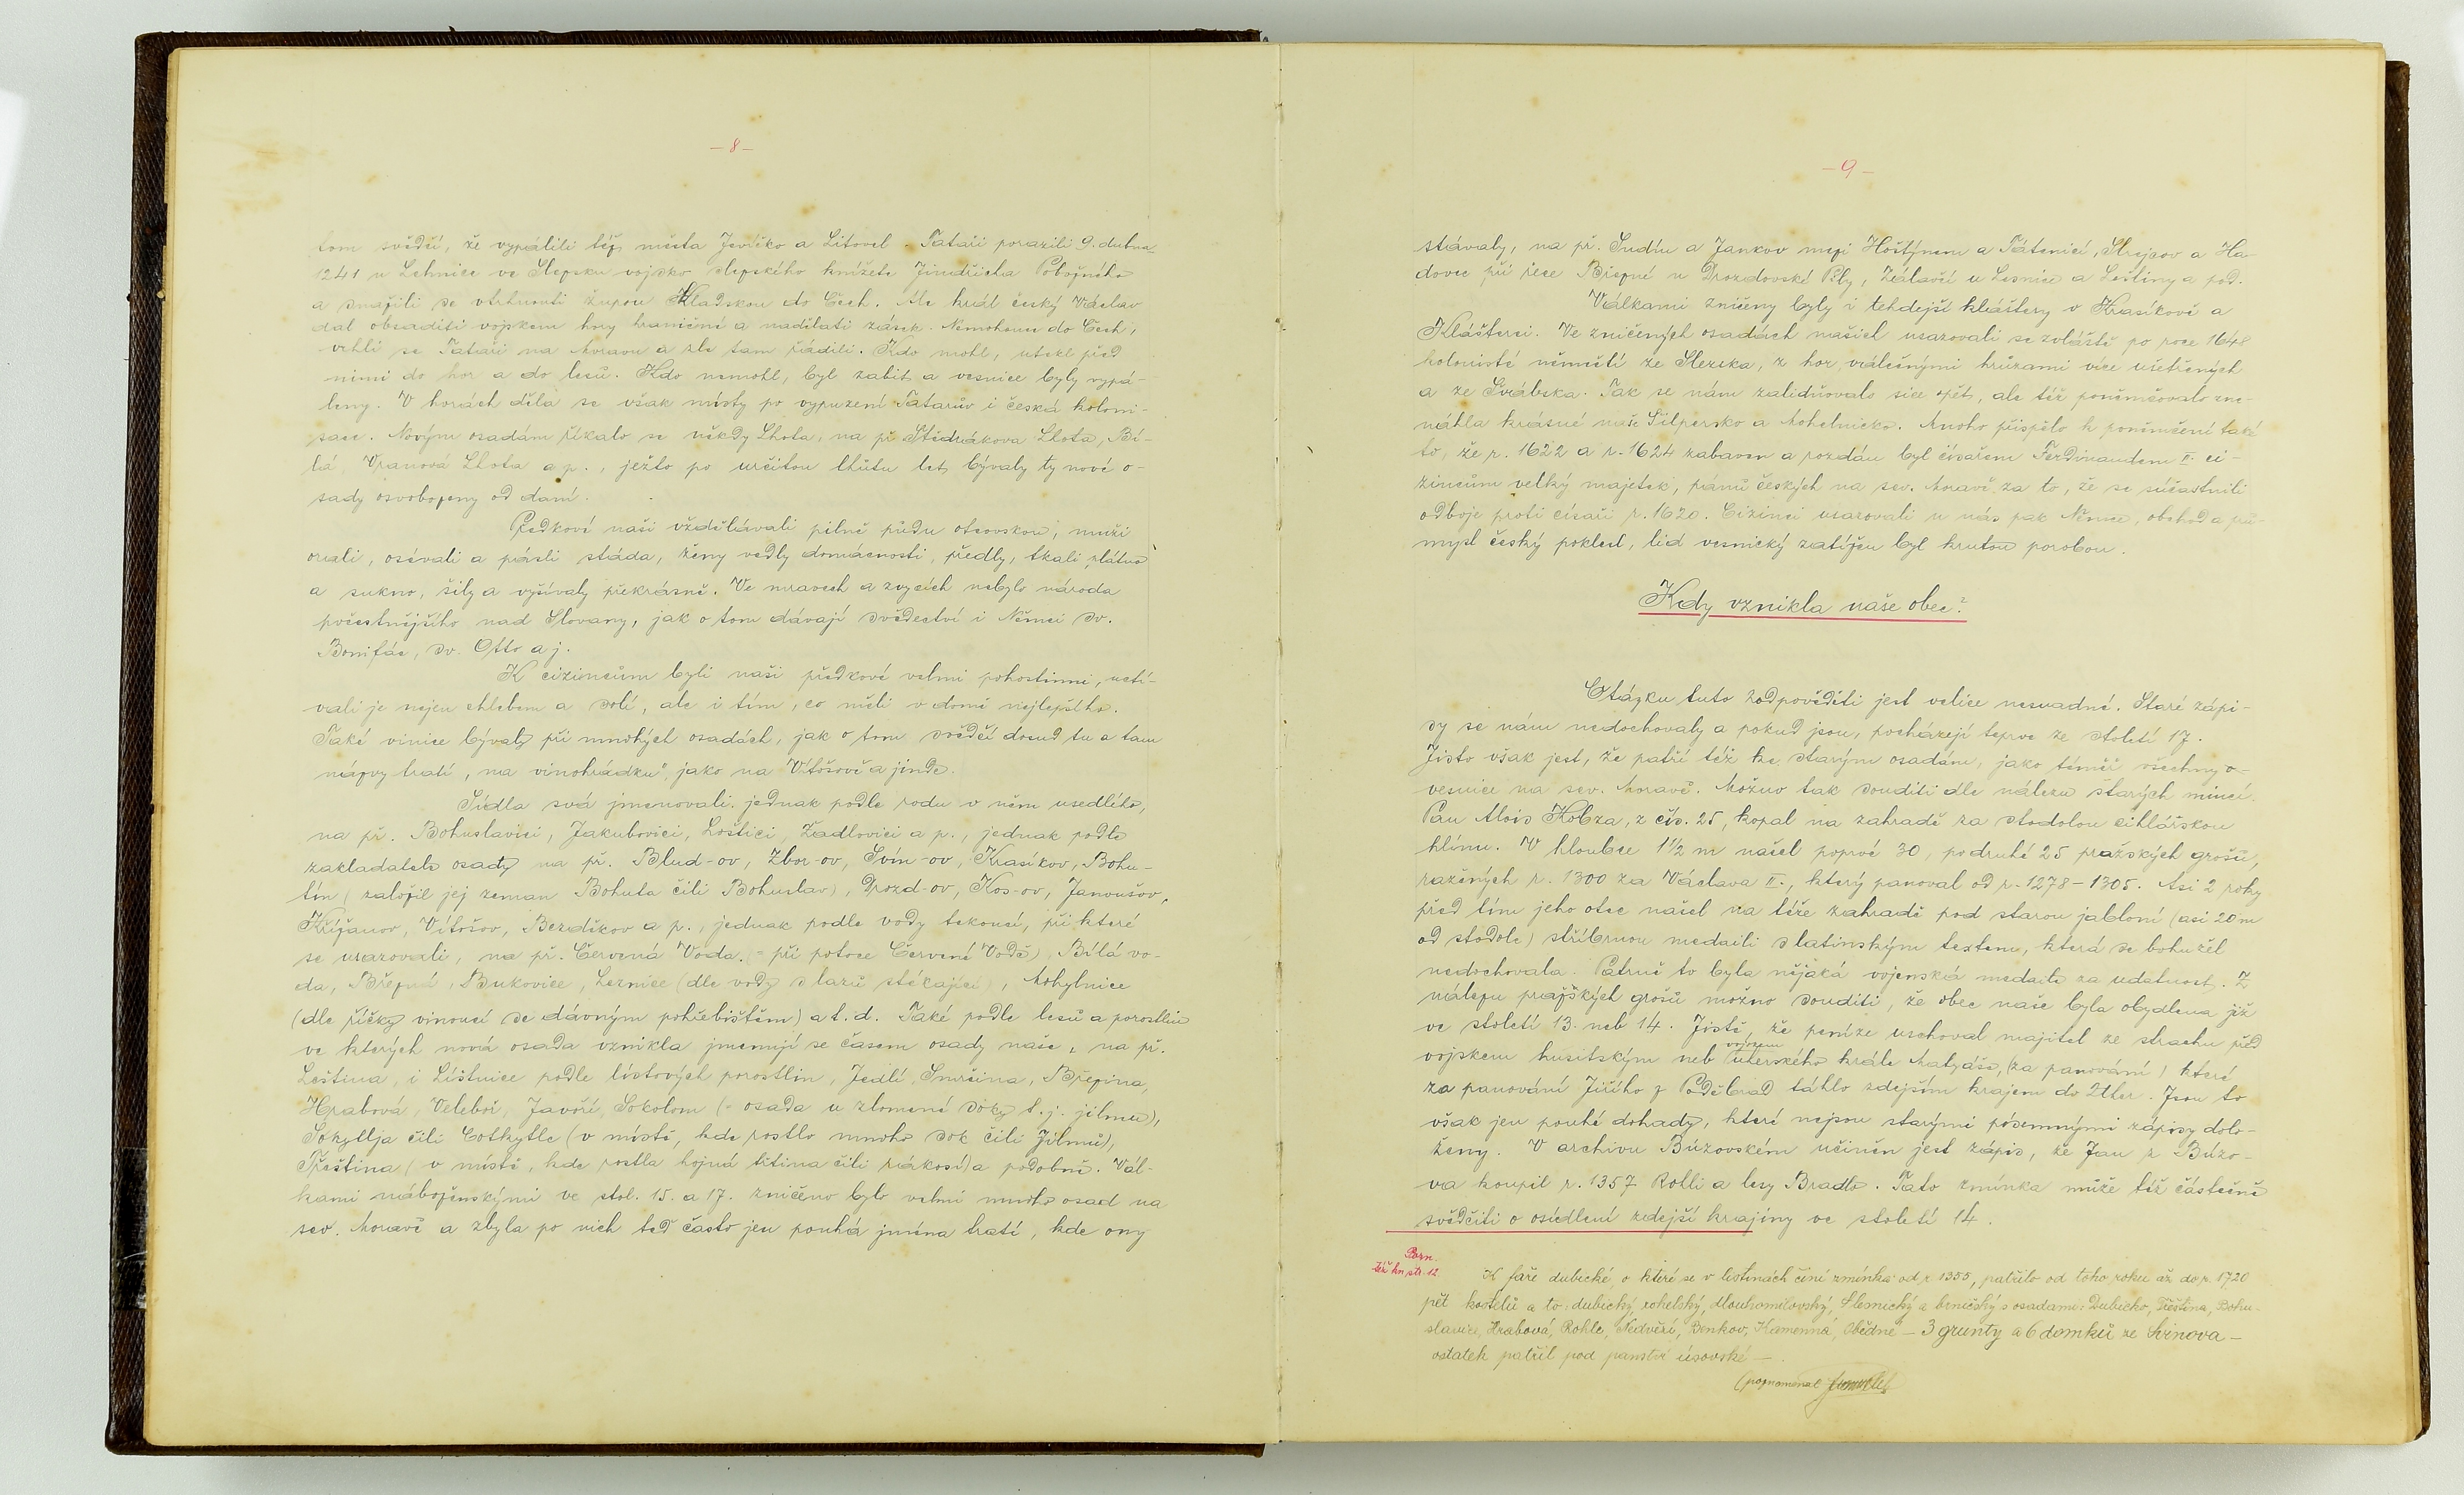 — 8 —
tom svědčí, že vypálili též města Jevíčko a Litovel. Tataři porazili 9. dubna
1241 u Lehnice ve Slezsku vojsko slezského knížete Jindřicha Pobožného
a snažili se vtrhnouti župou Kladskou do Čech. Ale král český Václav
dal obsaditi vojskem hory hraničné a nadělati zásek. Nemohouce do Čech,
vrhli se Tataři na Moravu a zle tam řádili. Kdo mohl, utekl před
nimi do hor a do lesů. Kdo nemohl, byl zabit a vesnice byly vypá-
leny. V horách děla se však místy po vypuzení Tatarův i česká koloni-
sace. Novým osadám říkalo se někdy Lhota, na př. Štědrákova Lhota, Bí-
lá, Vranová Lhota a p., ježto po určitou lhůtu let bývaly ty nové o-
sady osvobozeny od daní.
Předkové naši vzdělávali pilně půdu otcovskou; muži
orali, osévali a pásli stáda, ženy vedly domácnosti, předly, tkali plátno
a sukno, šily a vyšívaly překrásně. Ve mravech a zvycích nebylo národa
počestnějšího nad Slovany, jak o tom dávají svědectví i Němci sv.
Bonifác, sv. Otto a j.
K cizincům byli naši předkové velmi pohostinni, uctí-
vali je nejen chlebem a solí, ale i tím, co měli v domě nejlepšího.
Také vinice bývaly při mnohých osadách, jak o tom svědčí dosud tu a tam
názvy tratí, „na vinohrádku“, jako na Vitošově a jinde.
Sídla svá jmenovali jednak podle rodu v něm usedlého,
na př. Bohuslavici, Jakubovici, Loštici, Žadlovici a p., jednak podle
zakladatele osady na př. Blud-ov, Zbor-ov, Svin-ov, Krasíkov, Bohu-
tín (založil jej zeman Bohuta čili Bohuslav), Drozd-ov, Kos-ov, Janoušov,
Křižanov, Vitošov, Bezděkov a p., jednak podle vody tekoucí, při které
se usazovali, na př. Červená Voda (= při potoce Červené Vodě), Bílá vo-
da, Březná, Bukovice, Leznice (dle vody s lazů stékající), Mohylnice
(dle říčky vinoucí se dávným pohřebištěm) a t. d. Také podle lesů a porostlin
ve kterých nová osada vznikla jmenují se časem osady naše, na př.
Leština, i Líštnice podle listových porostlin, Jedlí, Smrčina, Březina,
Hrabová, Veleboř, Javoří, Sokolom (= osada u zlomené soky t. j. jilmu),
Sokytlja čili Cotkytle (v místě, kde rostlo mnoho sok čili jilmů),
Třeština (v místě, kde rostla hojná titina čili rákosí) a podobně. Vál-
kami náboženskými ve stol. 15. a 17. zničeno bylo velmi mnoho osad na
sev. Moravě a zbyla po nich teď často jen pouhá jména tratí, kde ony
— 9 —
stávaly, na př. Sudín a Jankov mezi Hoštýnem a Tátenicí, Strejcov a Ha-
dovec při řece Březné u Drozdovské Pily, Záblačí u Lesnice a Leštiny a pod.
Válkami zničeny byly i tehdejší kláštery v Krasíkově a
Klášterci. Ve zničených osadách našich usazovali se zvláště po roce 1648
kolonisté němečtí ze Slezska, z hor válečnými hrůzami více ušetřených
a ze Švábska. Tak se nám zalidňovalo sice opět, ale též poněmčovalo zne-
náhla krásné naše Šilpersko a Mohelnicko. Mnoho přispělo k poněmčení také
to, že r. 1622 a r. 1624 zabaven a rozdán byl císařem Ferdinandem II. ci-
zincům velký majetek, pánů českých na sev. Moravě za to, že se súčastnili
odboje proti císaři r. 1620. Cizinci usazovali u nás pak Němce, obchod a prů-
mysl český poklesl, lid vesnický zatížen byl krutou porobou.
Kdy vznikla naše obec?
Otázku tuto zodpověděti jest velice nesnadné. Staré zápi-
sy se nám nedochovaly a pokud jsou, pocházejí teprve ze století 17.
Jisto však jest, že patří též ke starým osadám, jako téměř všechny o-
vesnice na sev. Moravě. Možno tak souditi dle nálezu starých mincí.
Pan Alois Kobza, z čís. 25, kopal na zahradě za stodolou cihlářskou
hlínu. V hloubce 1½ m našel poprvé 30, podruhé 25 pražských grošů,
ražených r. 1300 za Václava II., který panoval od r. 1278–1305. Asi 2 roky
před tím jeho otec našel na téže zahradě pod starou jabloní (asi 20 m
od stodole) stříbrnou medaili s latinským textem, která se bohužel
nedochovala. Patrně to byla nějaká vojenská medaile za udatnost. Z
nálezu pražských grošů možno souditi, že obec naše byla obydlena již
ve století 13. neb 14. Jistě, že peníze uschoval majitel ze strachu před
vojskem husitským neb vojskem uherského krále Matyáše, (za panování) které
za panování Jiřího z Poděbrad táhlo zdejším krajem do Uher. Jsou to
však jen pouhé dohady, které nejsou starými písemnými zápisy dolo-
ženy. V archivu Búzovském učiněn jest zápis, že Jan z Búzo-
va koupil r. 1357 Rohli a lesy Bradlo. Tato zmínka může též částečně
svědčiti o osídlení zdejší krajiny ve století 14.
Pozn.
též kn. str. 12
K faře dubické, o které se v listinách činí zmínka od r. 1355, patřilo od toho roku až do r. 1720
pět kostelů a to: dubický, rohelský, dlouhomilovský, klemnický a brníčský s osadami: Dubicko, Třeština, Bohu-
slavice, Hrabová, Rohle, Nedvězí, Benkov, Kamenná, Obědné — 3 grunty a 6 domků ze Svinova —
ostatek patřil pod panství úsovské —.
(poznamenal